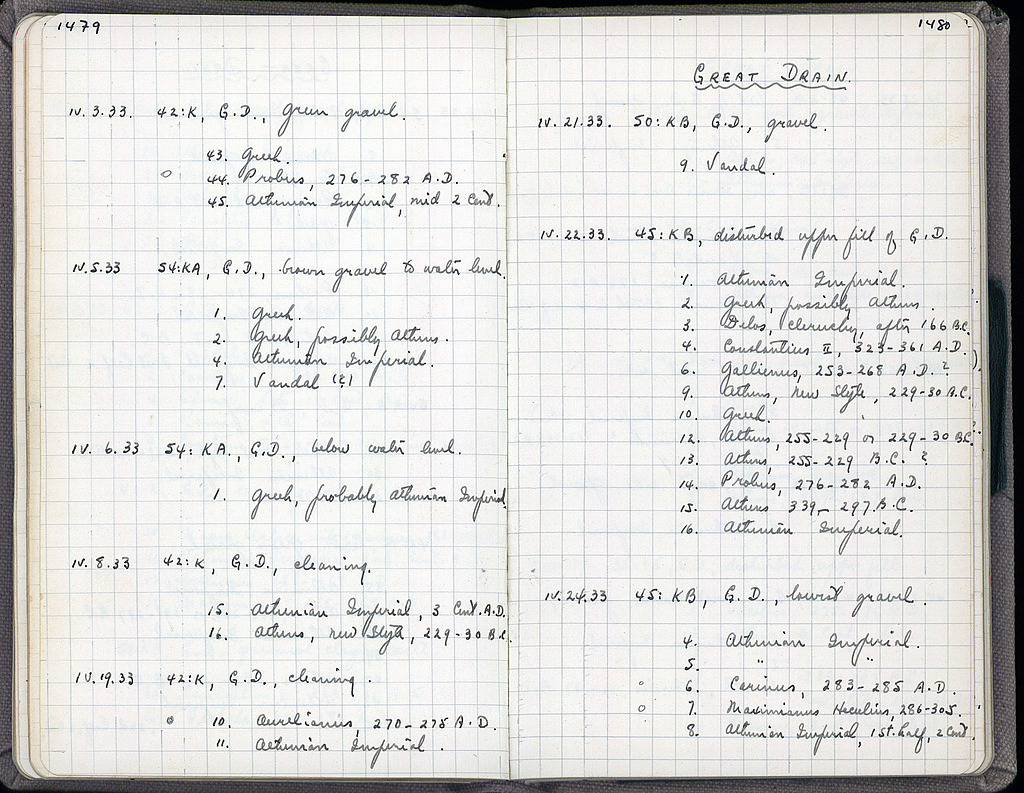 1479
IV.3.33. 42:K, G.D., Green gravel.
43. Greek.
44. Probus, 276-282 A.D.
45. Athenian Imperial, mid 2 Cent.
IV.5.33 54:KA, G.D., brown gravel to water level.
1. Greek.
2. Greek, possibly Athens.
4. Athenian Imperial.
7. Vandal (?)
IV. 6.33 54: KA., G.D., below water level.
1. Greek, probably Athenian Imperial
IV.8.33 42:K, G.D., cleaning.
15. Athenian Imperial, 3 Cent. A.D.
16. Athens, New Style, 229-30 B.C.
IV.19.33 42:K, G.D., cleaning.
10. Aurelianus, 270-275 A.D.
11. Athenian Imperial.
1480
GREAT DRAIN.
IV.21.33. 50:KB, G.D., gravel.
9. Vandal.
IV.22.33. 45:KB, disturbed upper fill of G.D.
1. Athenian Imperial.
2. Greek, possibly Athens.
3. Delos, cleruchy, after 166 B.C.
4. Constantius II, 323-361 A.D.
6. Gallienus, 253-268 A.D. ?
9. Athens, New Style, 229-30 B.C.
10. Greek.
12. Athens, 255-229 or 229-30 B.C.
13. Athens, 255-229 B.C. ?
14. Probus, 276-282 A.D.
15. Athens 339-297 B.C.
16. Athenian Imperial.
IV.24.33 45:KB, G.D., lowest gravel.
4. Athenian Imperial.
5. " "
6. Carinus, 283-285 A.D.
7. Maximianus Heculius, 286-305.
8. Athenian Imperial, 1st. half, 2 Cent.